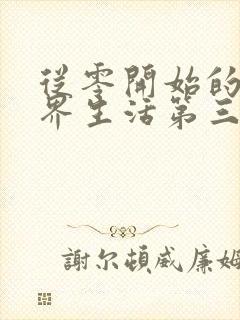 從零開始的
界生活第三
謝尔頓威廉姆